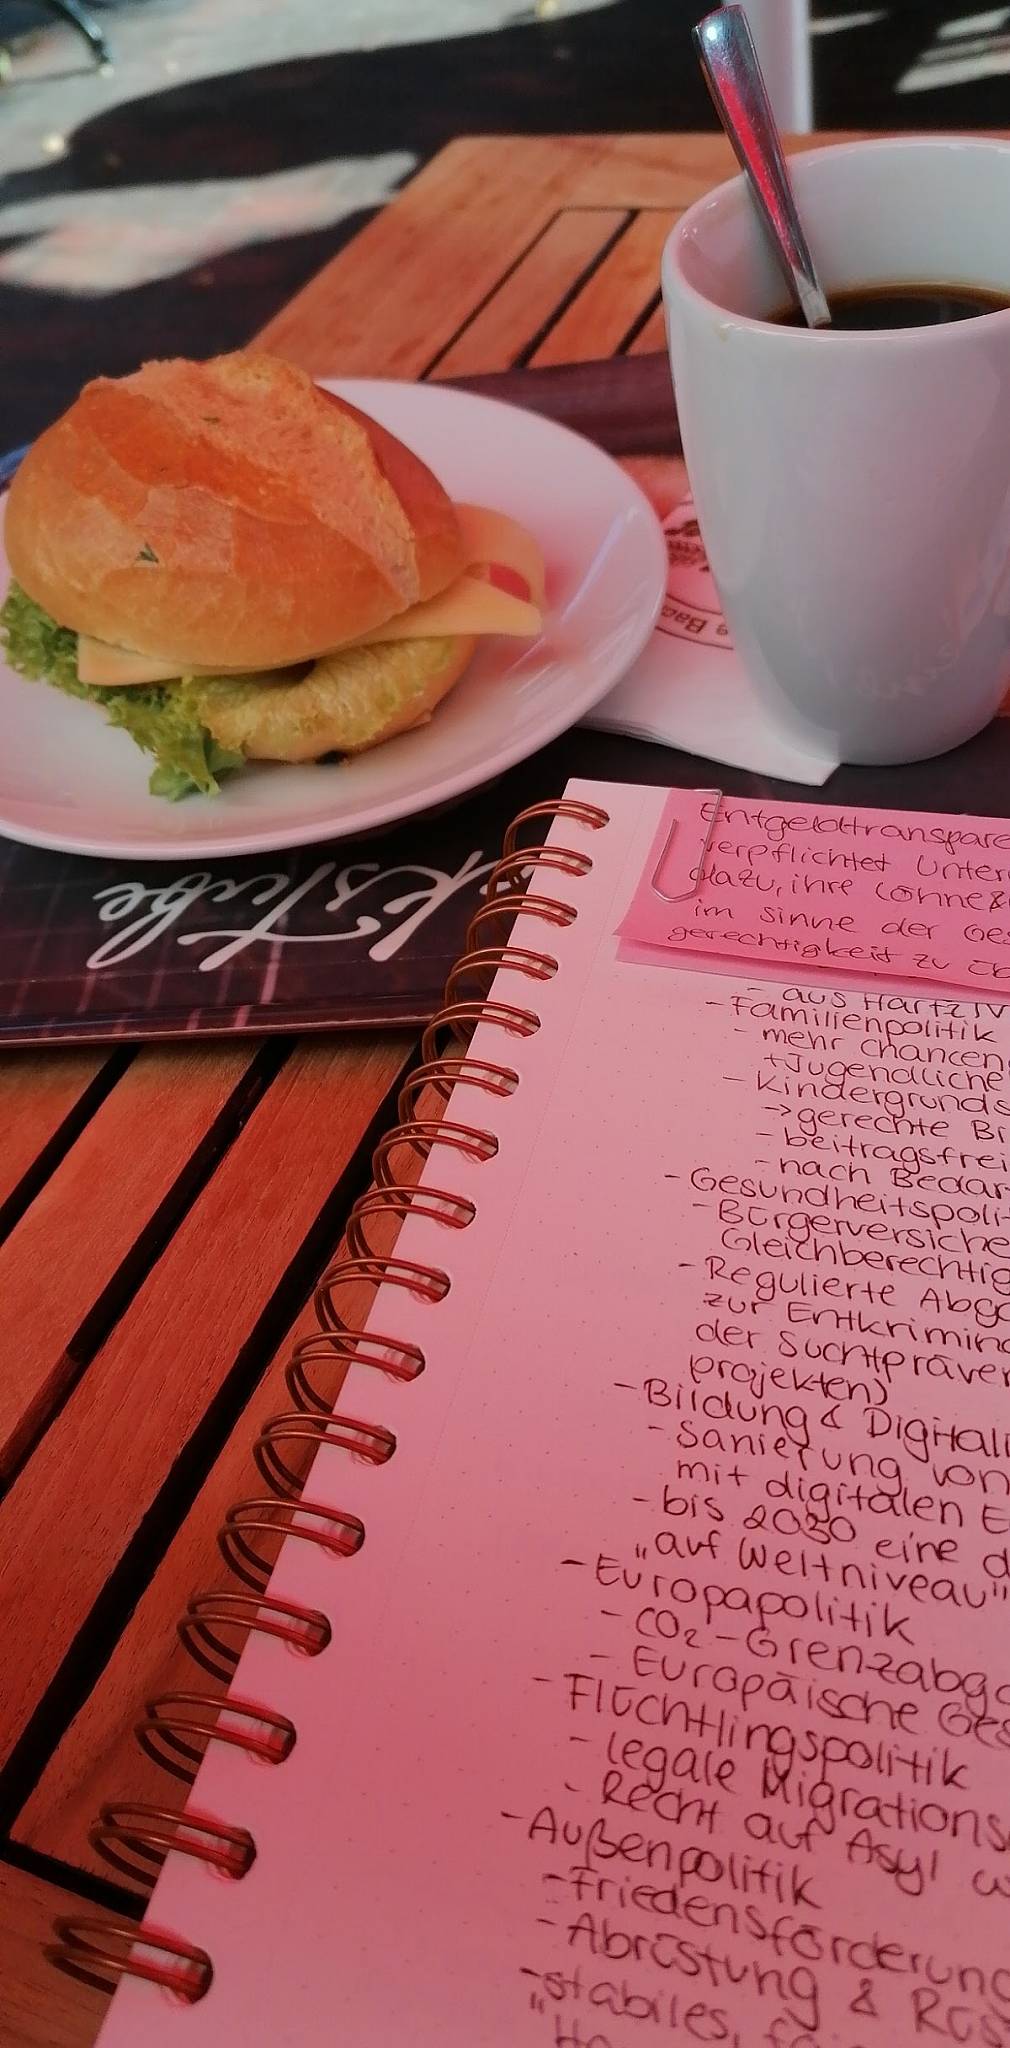 Entgeldtranspare
verpflichtet Unter
dazu, ihre Löhne &
im Sinne der Ges
gerechtigkeit zu üb
- aus Hartz IV
- Familienpolitik
- mehr Chancen
+ Jugendliche
- Kindergrunds
→ gerechte Bi
- beitragsfrei
- nach Bedar
- Gesundheitspolit
- Bürgerversiche
Gleichberechtig
- Regulierte Abga
zur Entkrimina
der Suchtpräven
projekten)
- Bildung & Digitali
- Sanierung von
mit digitalen E
- bis 2030 eine d
„auf Weltniveau"
- Europapolitik
- CO₂-Grenzabga
- Europäische Ges
- Flüchtlingspolitik
- legale Migrations
- Recht auf Asyl w
- Außenpolitik
- Friedensförderung
- Abrüstung & Rüs
- stabiles, fai
"Ha
kstube
e Bac